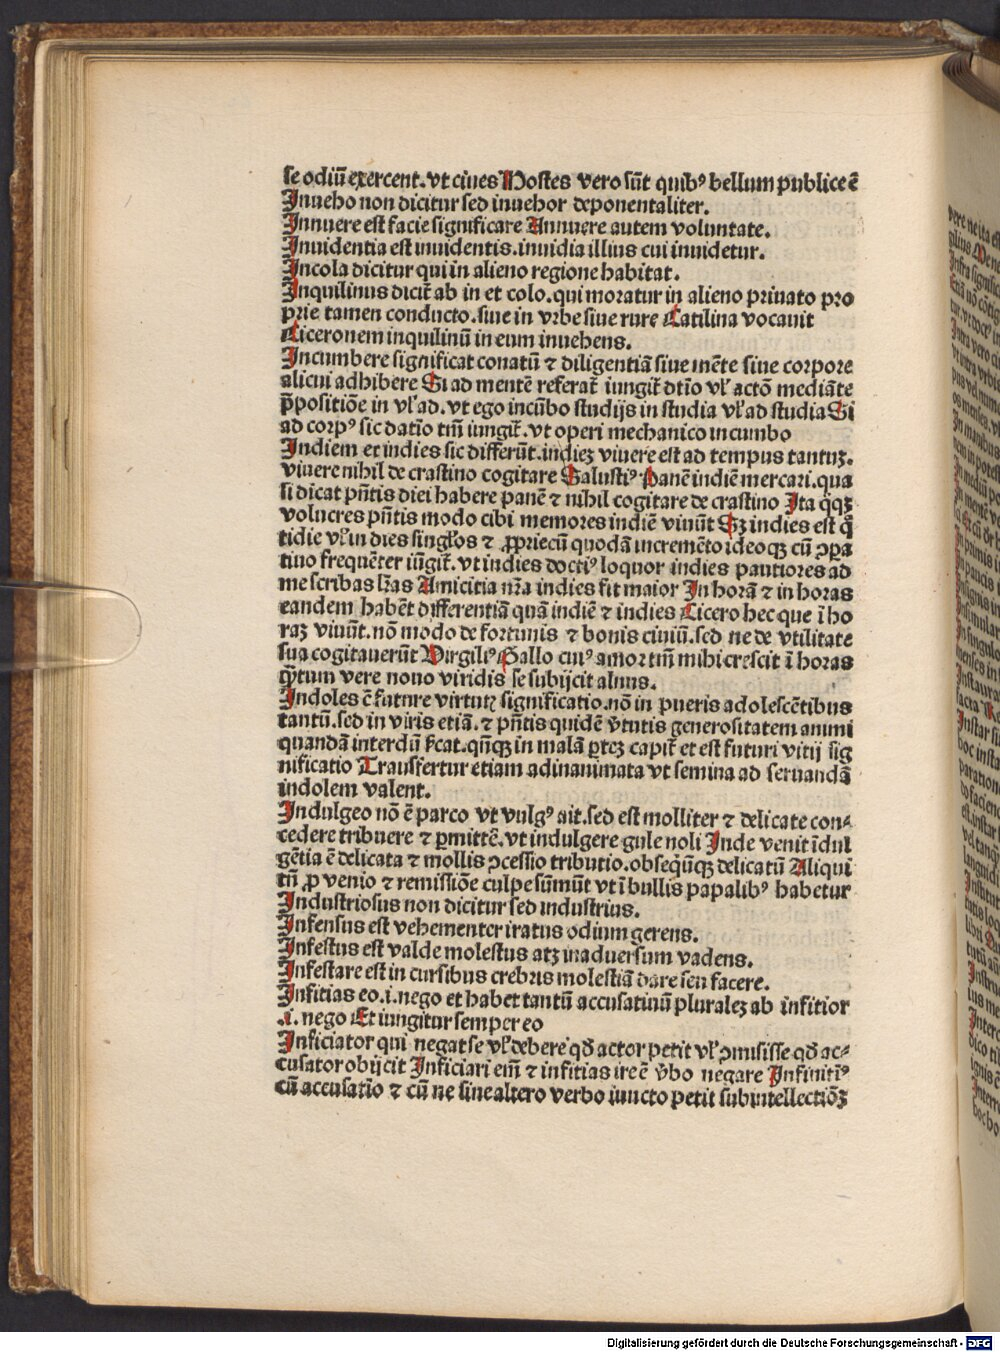 se odiū exercent. vt ciues Hostes vero sūt quibꝰ bellum publice ē
Inueho non dicitur sed inuehor deponentaliter.
Innuere est facie significare Annuere autem voluntate.
Inuidentia est inuidentis. inuidia illius cui inuidetur.
Incola dicitur qui in alieno regione habitat.
Inquilinus dicit̃ ab in et colo. qui moratur in alieno priuato pro
prie tamen conducto. siue in vrbe siue rure Catilina vocauit
Ciceronem inquilinū in eum inuehens.
Incumbere significat conatū ⁊ diligentiā siue mēte siue corpore
alicui adhibere Si ad mentē referat̃ iungit̃ dtīo vl̓ actō mediāte
p̄positiōe in vl̓ ad. vt ego incūbo studijs in studia vl̓ ad studia Si
ad corpꝰ sic datio tm̄ iungit̃. vt operi mechanico incumbo
Indiem et indies sic differūt. indieꝫ viuere est ad tempus tantuꝫ.
viuere nihil de crastino cogitare Salustiꝰ Panē indiē mercari. qua
si dicat pn̄tis diei habere panē ⁊ nihil cogitare de crastino Ita q̄qꝫ
volucres pn̄tis modo cibi memores indiē viuūt Sꝫ indies est q̄
tidie vl̓ in dies singl̓os ⁊ ꝓpriecū quodā incremēto ideoqꝫ cū ꝯpa
tiuo frequēter iūgit̃. vt indies doctiꝰ loquor indies pautiores ad
me scribas lr̄as Amicitia nr̄a indies fit maior In horā ⁊ in horas
eandem habēt differentiā quā indiē ⁊ indies Cicero hec que ī ho
raꝫ viuūt. nō modo de fortunis ⁊ bonis ciuiū. sed ne de vtilitate
sua cogitauerūt Virgiliꝰ Gallo cuiꝰ amor tm̄ mihi crescit ī horas
q̄tum vere nouo viridis se subijcit alnus.
Indoles ē future virtutꝭ significatio. nō in pueris adolescētibus
tantū. sed in viris etiā. ⁊ pn̄tis quidē v̄tutis generositatem animi
quandā interdū s̄cat. qn̄qꝫ in malā ꝑteꝫ capit̃ et est futuri vitij sig
nificatio Transfertur etiam ad inanimata vt semina ad seruandā
indolem valent.
Indulgeo nō ē parco vt vulgꝰ ait. sed est molliter ⁊ delicate con⸗
cedere tribuere ⁊ ꝑmittē. vt indulgere gule noli Inde venit īdul
gētia ē delicata ⁊ mollis ꝯcessio tributio. obseq̄ūqꝫ delicatū Aliqui
tn̄ ꝓ venio ⁊ remissiōe culpe sūmūt vt ī bullis papalibꝰ habetur
Industriosus non dicitur sed industrius.
Infensus est vehementer iratus odium gerens.
Infestus est valde molestus atqꝫ inaduersum vadens.
Infestare est in cursibus crebris molestiā dare seu facere.
Infitias eo .i. nego et habet tantū accusatiuū pluraleꝫ ab infitior
.i. nego Et iungitur semper eo
Inficiator qui negat se vl̓ debere qd̄ actor petit vl̓ ꝯmisisse qd̄ ac⸗
cusator obijcit Inficiari eīm ⁊ infitias ire ē v̄bo negare Infinitiꝰ
cū accusatīo ⁊ cū ne sine altero verbo iuncto petit subintellectiōꝫ